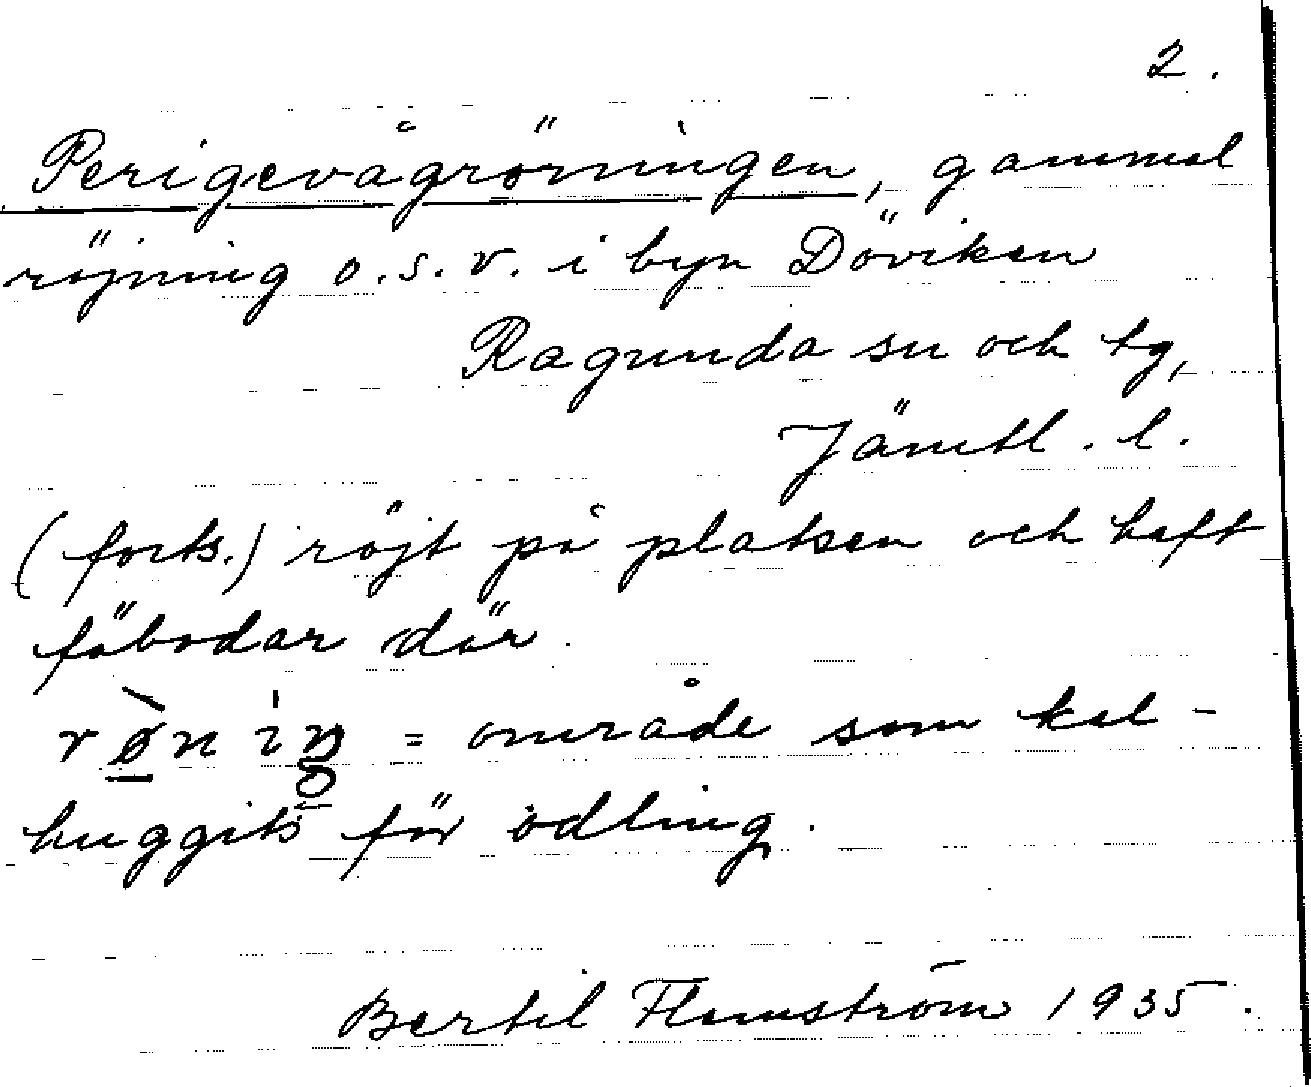 2.
Perigevågröningen, gammal
röjning o.s.v. i byn Döviken
Ragunda sn och tg,
Jämtl. l.
(forts.) röjt på platsen och haft
fäbodar där.
= område som kal-
huggits för odling.
Bertil Flemström 1935.